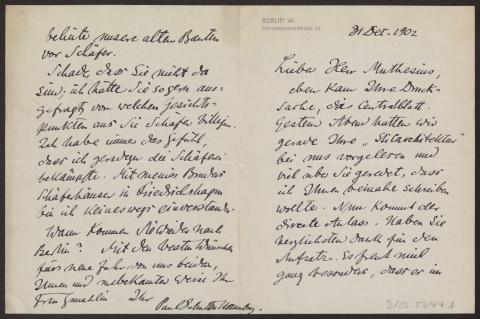 BERLIN W.
POTSDAMERSTRASSE
31 Dez. 1902
Lieber Herr Muthesius,
eben kam Ihre Druck-
sache, die Centralblatt.
Gestern Abend hatten wir
gerade Ihre „Stilarchitektur"
bei uns vorgelesen und
viel über Sie geredet, dass
ich Ihnen beinahe schreiben
wollte. Nun kommt der
directe Anlass. Haben Sie
herzlichsten Dank für den
Aufsatz. Es freut mich
ganz besonders, dass er im
D102-5744a
behüte unsere alten Bauten
vor Schäfer.
Schade, dass Sie nicht da
sind; ich hätte Sie so gern aus-
gefragt von welchen Gesichts-
punkten aus Sie Schäfer billigen.
Ich habe immer das Gefühl,
dass ich geradezu die Schäferei
bekämpfte. Mit meines Bruders
Schäferhäuser in Friedrichshagen
bin ich keineswegs einverstanden.
Wann kommen Sie wieder nach
Berlin? Mit den besten Wünschen
fürs neue Jahr von uns beiden,
Ihnen und unbekannter Weise Ihrer
Frau Gemahlin Ihr
Paul Schultze Naumburg.